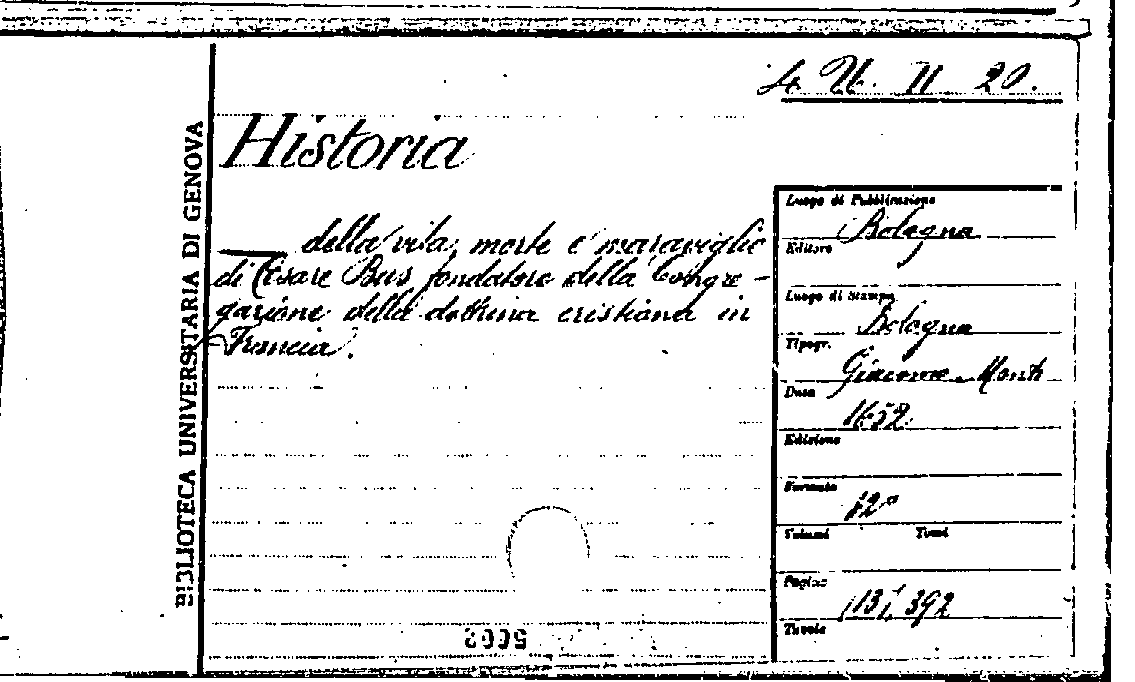 4. U. II 20.
BIBLIOTECA UNIVERSITARIA DI GENOVA
Historia
della vita, morte e maraviglie
di Cesare Bus fondatore della Congre-
gazione della dottrina cristiana in
Francia.
Luogo di Pubblicazione
Bologna
Editore
Luogo di Stampa
Bologna
Tipogr.
Giacomo Monti
Data
1652
Edizione
Formato
12°
Volumi Tomi
Pagine
392
Tavole